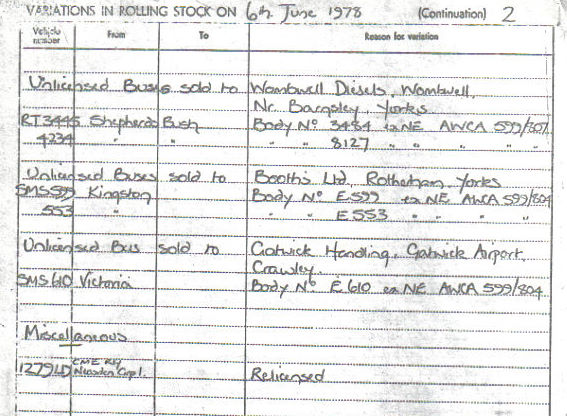 VARIATIONS IN ROLLING STOCK ON 6th June 1978 (Continuation) 2
Vehicle number From To Reason for variation
Unlicensed Buses sold to Wombwell Diesels, Wombwell,
Nr. Barnsley, Yorks
RT3445 Shepherds Bush Body No 3484 ex NE AWCA 599/801
4234 " " " " 8127 " " " "
Unlicensed Buses sold to Booths Ltd, Rotherham, Yorks
SMS599 Kingston Body No E599 ex NE AWCA 599/804
553 " " " E553 " " " "
Unlicensed Bus sold to Gatwick Handling, Gatwick Airport,
Crawley
SMS610 Victoria Body No E610 ex NE AWCA 599/804
Miscellaneous
1279LD CME Rly
Neasden Cripl. Relicensed